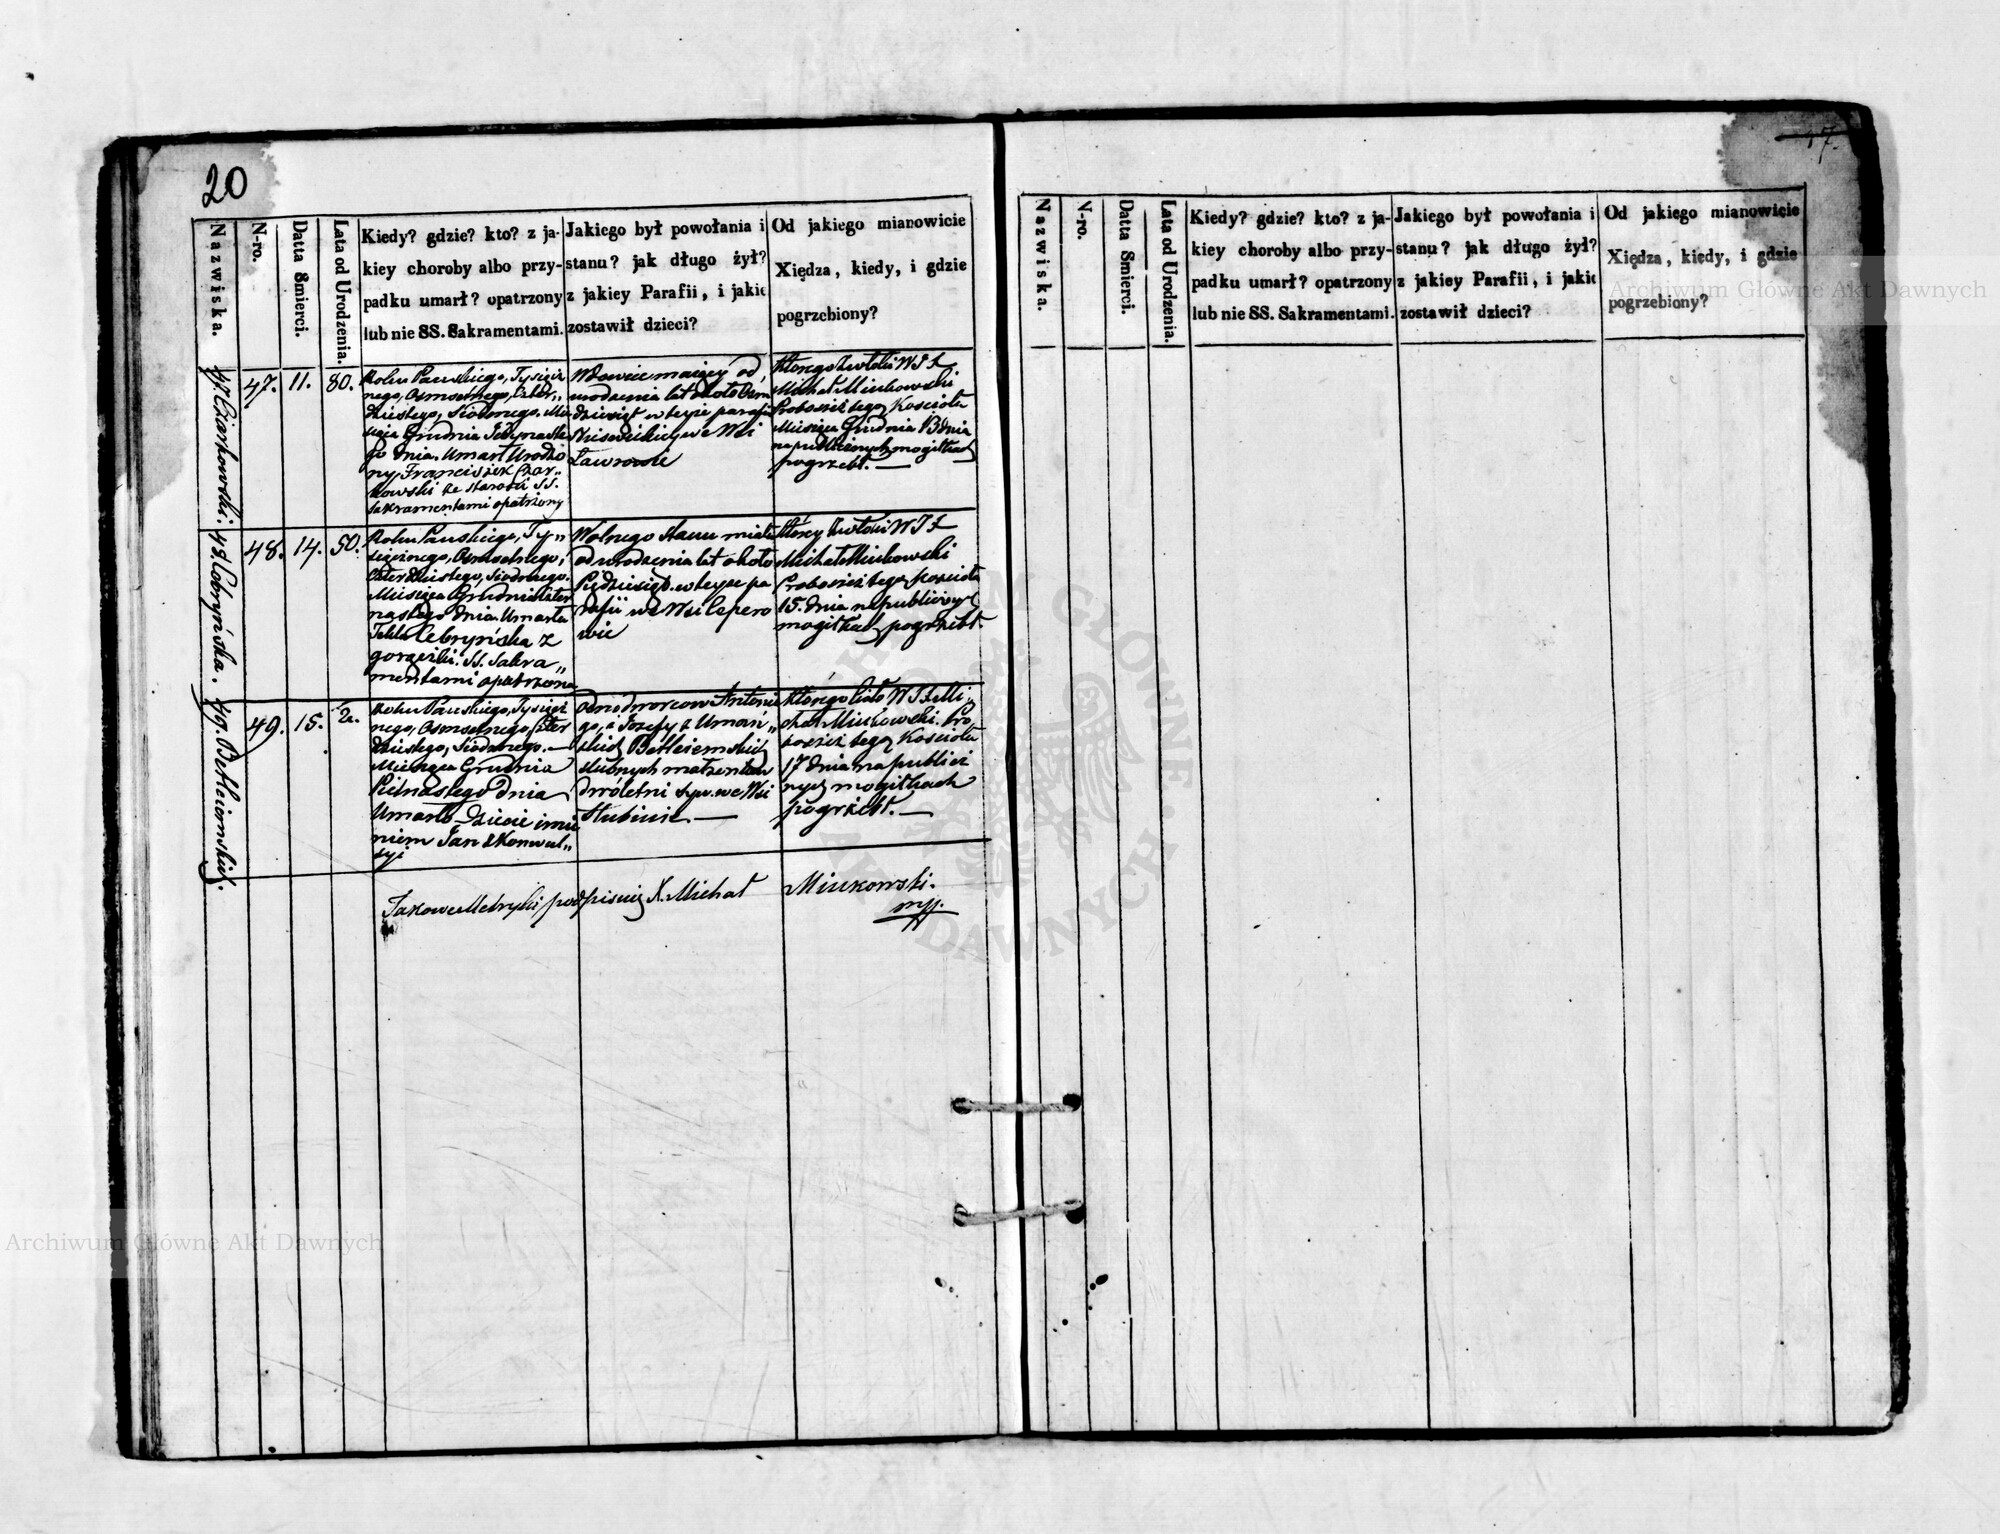 20
Nazwiska.
N-ro.
Datta Smierci.
Lata od Urodzenia.
Kiedy? gdzie? kto? z ja-
kiey choroby albo przy-
padku umarł? opatrzony
lub nie SS. Sakramentami.
Jakiego był powołania i
stanu? jak długo żył?
z jakiey Parafii, i jakie
zostawił dzieci?
Od jakiego mianowicie
Xiędza, kiedy, i gdzie
pogrzebiony?
47.
11.
80.
Roku Pańskiego, Tysiącz
nego, Osmsetnego, Czter„
dziestego, Siódmego. Mie
siąca Grudnia Jedynaste
go dnia. Umarł Urodzo
ny, Franciszek Czar„
kowski ze starości SS.
Sakramentami opatrzony
Wdowiec maiący od
urodzenia lat około Ośm
dziesiąt w teyże parafii
we Wsi
Ławrowie
Którego Zwłoki WJX
Michał Miukowski
Proboszcz tego Kościoła
Miesiąca Grudnia 13 dnia
na publicznych mogiłkach
pogrzebł. —
48.
14.
50.
Roku Pańskiego, Ty„
siącznego, Osmsetnego,
Czterdziestego, Siódmego.
Miesiąca Grudnia Czter
nastego dnia. Umarła
Tekla Cebryńska z
gorączki. SS. Sakra„
mentami opatrzona
Wolnego stanu miała
od urodzenia lat około
Pięćdziesiąt. w teyże pa
rafii we Wsi Cepero
wie
Którey Zwłoki WJX
Michał Miukowski
Proboszcz tego Kościoła
15. dnia na publicznych
mogiłkach pogrzebł.
49.
15.
2.
Roku Pańskiego, Tysiącz
nego, Osmsetnego, Czter
dziestego, Siódmego. —
Miesiąca Grudnia
Pietnastego dnia
Umarło Dziecie imie
niem Jan z Konwul„
syi
Odnodworcow Antonie
go, i Jozefy z Uman„
skich Betleiemskich
slubnych małżonków
dwóletni syn. we Wsi
Hubinie. —
Którego Ciało WJX Mi„
chał Miukowski. Pro
boszcz tego Kościoła
17 dnia na publicz
nych mogiłkach
pogrzebł. —
47 Czarkowski. 48 Cebryńska. 49. Betleiemskich.
Takowe Metryki podpisuię X. Michał Miukowski.
mp.
17.
Nazwiska.
N-ro.
Datta Smierci.
Lata od Urodzenia.
Kiedy? gdzie? kto? z ja-
kiey choroby albo przy-
padku umarł? opatrzony
lub nie SS. Sakramentami.
Jakiego był powołania i
stanu? jak długo żył?
z jakiey Parafii, i jakie
zostawił dzieci?
Od jakiego mianowicie
Xiędza, kiedy, i gdzie
pogrzebiony?
Archiwum Główne Akt Dawnych
Archiwum Główne Akt Dawnych